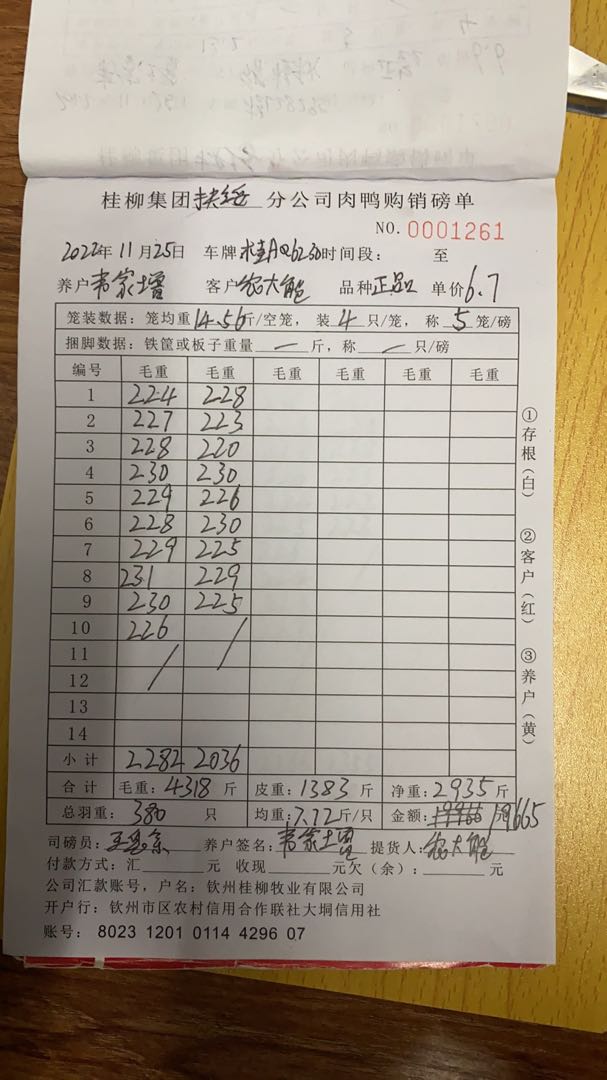 桂柳集团扶绥分公司肉鸭购销磅单
NO. 0001261
2022年11月25日 车牌桂A Q6230时间段： 至
养户韦家增 客户农大能 品种正品 单价6.7
笼装数据：笼均重14.56斤/空笼，装4只/笼，称5笼/磅
捆脚数据：铁筐或板子重量—斤，称—只/磅
编号 毛重 毛重 毛重 毛重 毛重 毛重
1 224 228
2 227 223
3 228 220
4 230 230
5 229 226
6 228 230
7 229 225
8 231 229
9 230 225
10 226 /
11 /
12
13
14
小计 2282 2036
合计 毛重：4318斤 皮重：1383斤 净重：2935斤
总羽重：380只 均重：7.72斤/只 金额：19665元
司磅员： 养户签名：韦家增 提货人：农大能
付款方式：汇 元 收现 元欠（余）： 元
公司汇款账号，户名：钦州桂柳牧业有限公司
开户行：钦州市区农村信用合作联社大垌信用社
账号： 8023 1201 0114 4296 07
①存根（白）
②客户（红）
③养户（黄）